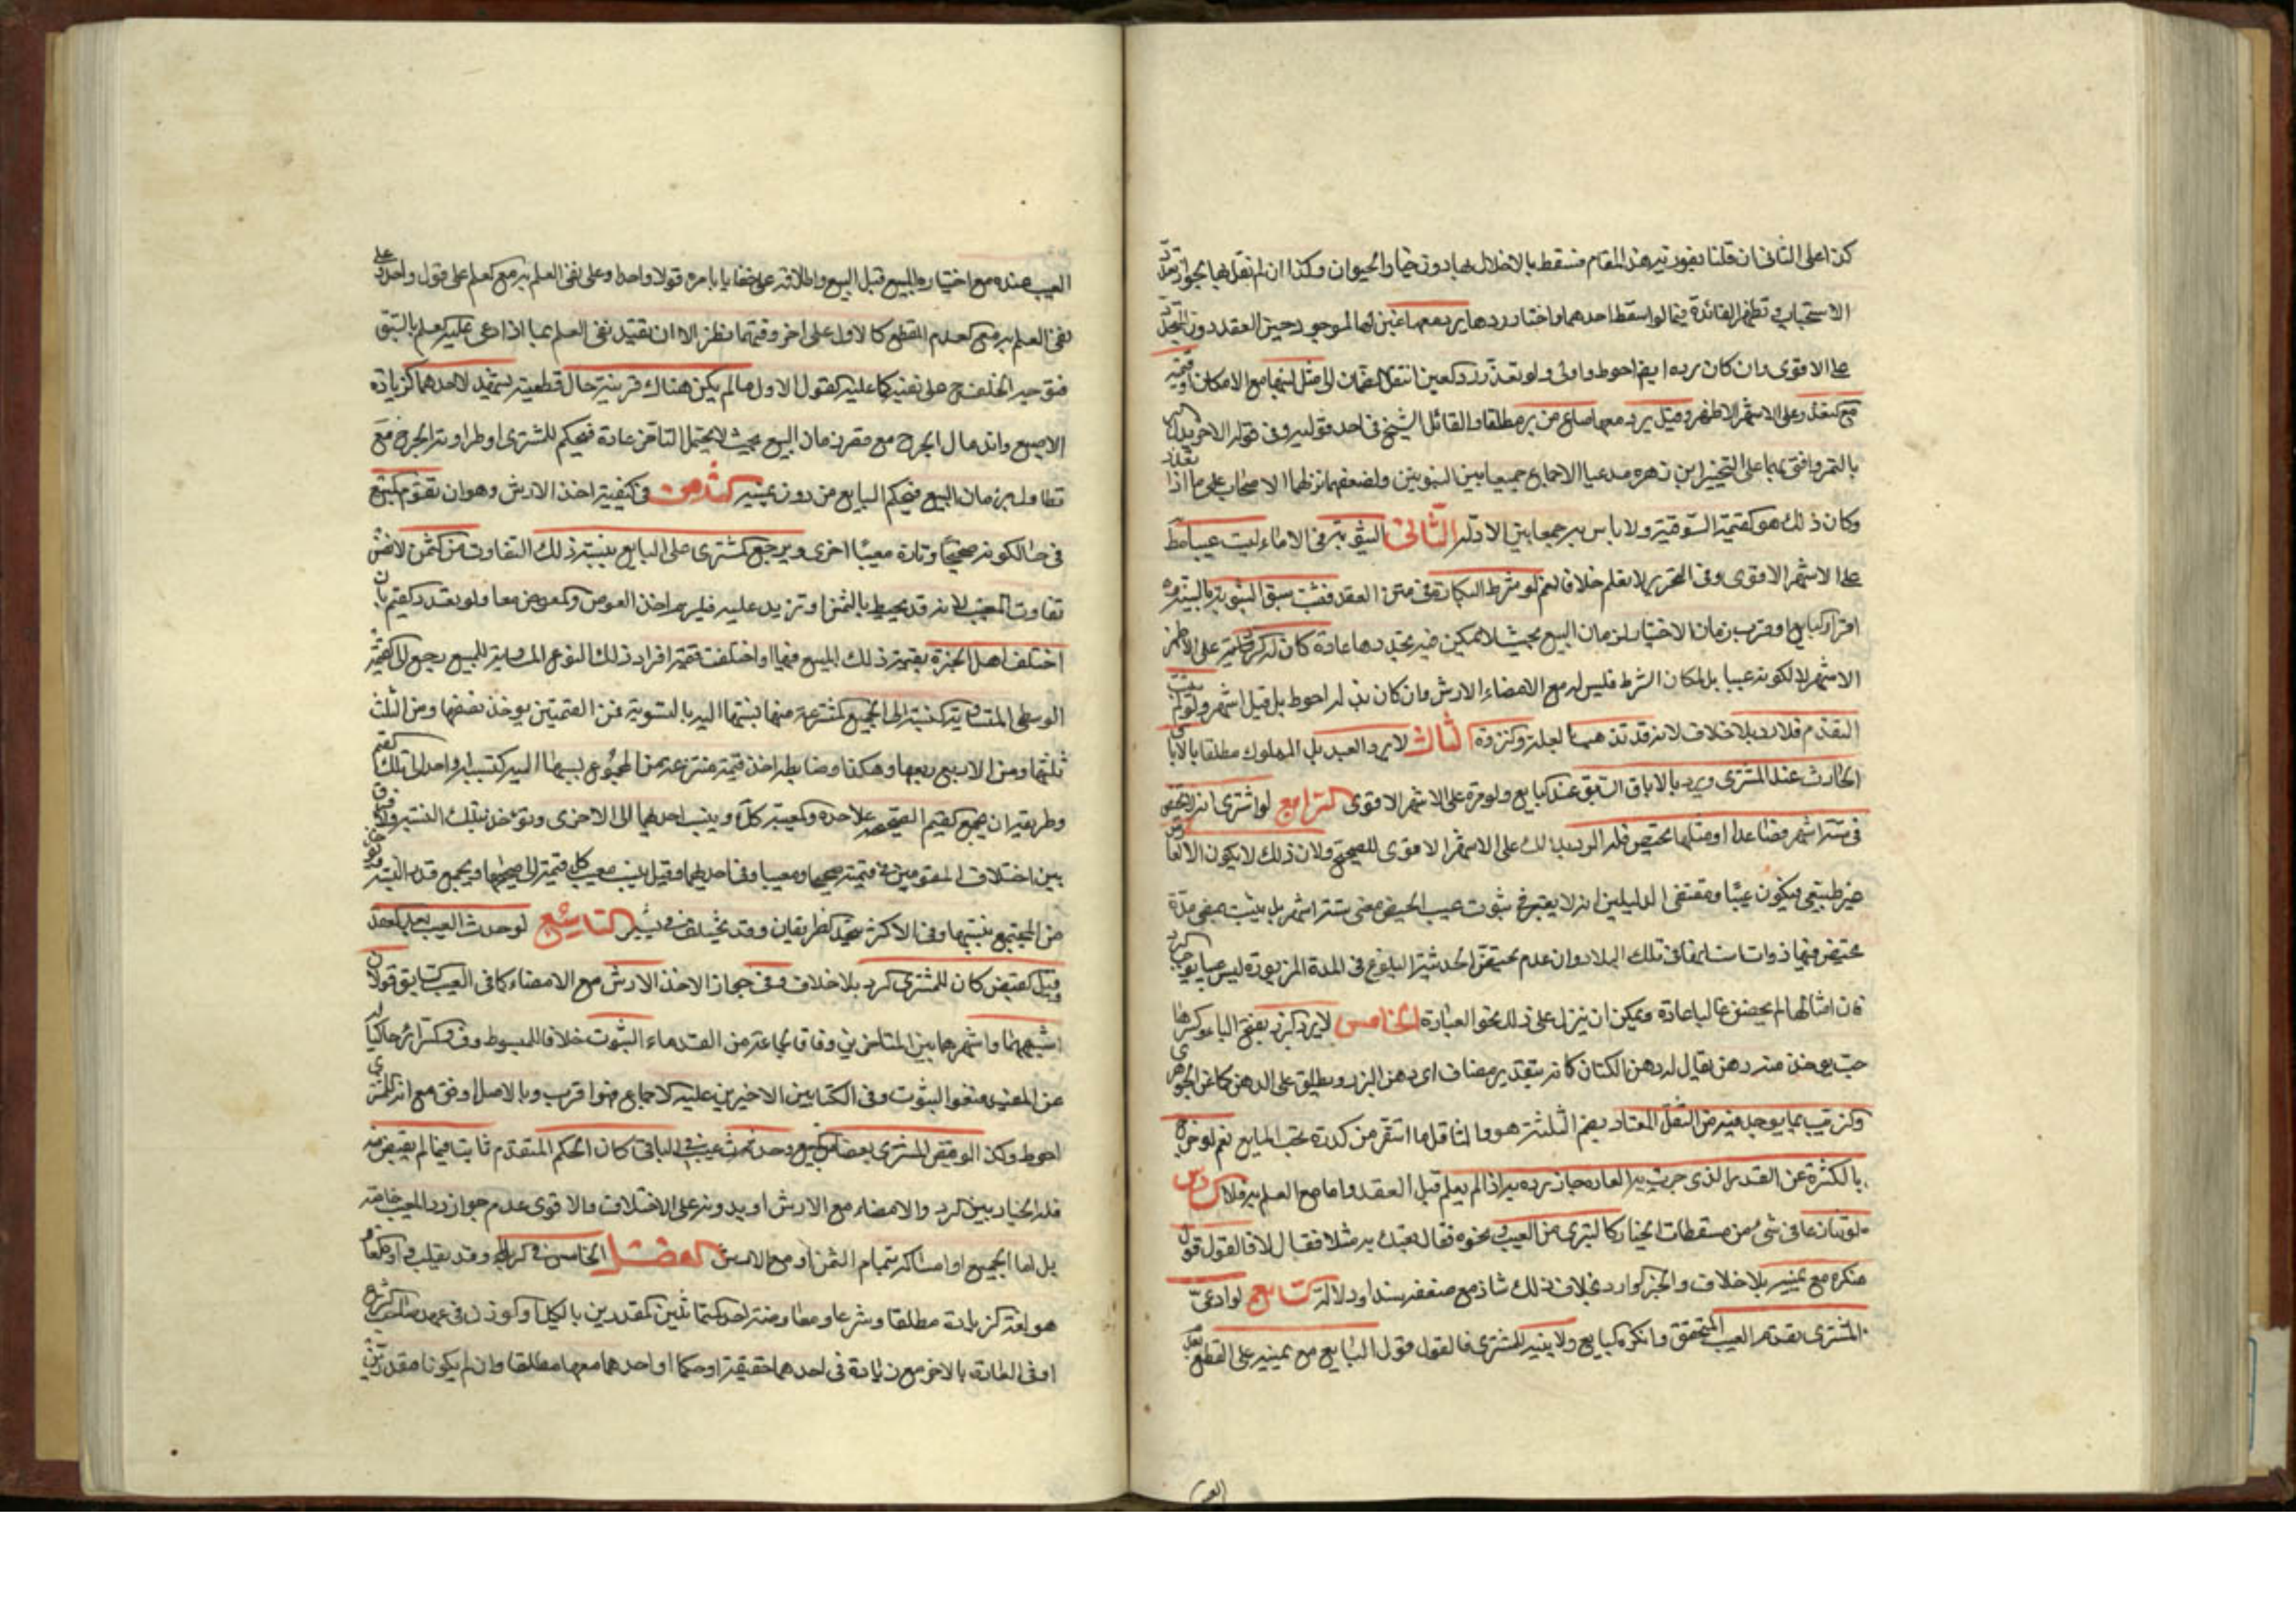 كذا على الثاني ان قلنا بفوريته هذا المقام فتسقط بالاخلال بها دون خيار الحيوان وكذا ان لم نقل بها بجواز تعدد
الاسباب وتظهر الفائدة فيما لو اسقط احدهما واختار ردها يرد معها لبنها الموجود حين العقد دون المتجدد
على الاقوى وان كان رده ايضا احوط واولى ولو تعذر رد العين انتقل الضمان الى مثل لبنها مع الامكان او قيمته
مع التعذر وعلى الاشهر الاظهر وقيل يرد معها صاع من بر مطلقا والقائل الشيخ في احد قوليه وفي قوله الاخر
بالتمر وافتى بهما على التخيير ابن زهره مدعيا الاجماع جمعا بين النبويين ولضعفهما نزلهما الاصحاب على ما اذا تعذر
وكان ذلك هو القيمة السوقية ولا باس به جمعا بين الادلة الثاني الثيوبة في الاماء ليست عيبا
على الاشهر الاقوى وفي التحرير لا نعلم خلافا نعم لو شرط البكارة في متن العقد فثبت سبق الثيوبة بالبينة او
اقرار البايع او قرب زمان الاختيار لزمان البيع بحيث لا يمكن فيه تجددها عادة كان له الرد على الاظهر
الاشهر لا لكونه عيبا بل لمكان الشرط فليس له مع الامضاء الارش وان كان بذله احوط بل قيل اشهر ولو لم يثبت
التقدم فلا رد بلا خلاف لانه قد تذهب العلة والنزوة الثالث لا يرد العبد بل المملوك مطلقا بالاباق
الحادث عند المشتري ويرد بالاباق السابق عند البايع ولو مرة على الاشهر الاقوى الرابع لو اشترى امة لا تحيض
في ستة اشهر فصاعدا ومثلها تحيض فله الرد بذلك على الاشهر الاقوى للصحيح ولان ذلك لا يكون الا لعارض
غير طبيعي فيكون عيبا ومقتضى الدليلين انه لا يعتبر في ثبوت عيب الحيض مضي ستة اشهر بل يثبت بمضي مدة
تحيض فيها ذوات اسنانها في تلك البلاد وان عدم تحيض الحديثة البلوغ في المدة المزبورة ليس عيبا يوجب الرد
فان امثالها لم يحضن غالبا عادة ويمكن ان ينزل على ذلك نحو العبارة الخامس لا يرد البزر بفتح الباء وكسرها
حب يؤخذ منه دهن يقال له دهن الكتان كانه بتقدير مضاف اي دهن البزر ويطلق على الدهن كما عن الجوهري
والزيت بما يوجد فيه من الثفل المعتاد بضم المثلثة هو والثافل ما استقر من كدرة تحت المايع نعم لو خرج
بالكثرة عن القدر الذي جرت به العادة جاز رده به اذا لم يعلم قبل العقد واما مع العلم به فلا السادس
لو تنازعا في شيء من مسقطات الخيار كالتبري من العيب ونحوه فقال بعتك به مثلا فقال لا فالقول قول
منكره مع يمينه بلا خلاف والخبر الوارد بخلاف ذلك شاذ مع ضعفه سندا ودلالة السابع لو ادعى
المشتري تقدم العيب المتحقق وانكره البايع ولا بينة للمشتري فالقول قول البايع مع يمينه على القطع بعدم
العيب عنده مع اختياره المبيع قبل البيع واطلاعه على خفايا بامره قولا واحدا وعلى نفي العلم به مع العلم على قول واحد وعلى
نفي العلم به مع عدم القطع كالاول على اخر وفيهما نظر الا ان نقيد نفي العلم بما اذا ادعى عليه العلم بالسبق
فتوجه الحلف ح على نفيه كما عليه القول الاول ما لم يكن هناك قرينة حال قطعية يشهد لاحدهما كزيادة
الاصبع واندمال الجرح مع قرب زمان البيع بحيث لا يحتمل التاخر عادة فيحكم للمشتري او طراوة الجرح مع
تطاول زمان البيع فيحكم للبايع من دون يمين الثامن في كيفية اخذ الارش وهو ان تقوم المبيع
في حال كونه صحيحا وتارة معيبا اخرى ويرجع المشتري على البايع بنسبة ذلك التفاوت من الثمن لا نفس
تفاوت المعيب لانه قد يحيط بالثمن او تزيد عليه فيلزم اخذ العوض والمعوض معا ولو تعدد القيم بان
اختلف اهل الخبرة بقيمة ذلك المبيع فيها او اختلفت قيمة افراد ذلك النوع المساوية للمبيع رجع الى القيمة
الوسطى المتساوية النسبة الى الجميع المنتزعة منها نسبتها اليه بالسوية فمن القيمتين يؤخذ نصفها ومن الثلث
ثلثها ومن الاربع ربعها وهكذا وضابطه اخذ قيمة منتزعة من المجموع نسبتها اليه كنسبة الواحد الى تلك القيم
وطريقه ان يجمع القيم الصحيحة على حدة والمعيبة كك وينسب احدهما الى الاخرى ويؤخذ بتلك النسبة ولا فرق
بين اختلاف المقومين في قيمته صحيحا ومعيبا وفي احدهما وقيل ينسب معيب كل قيمة الى صحيحها ويجمع قدر النسبة
من المجتمع بنسبتها وفي الاكثر يتحد الطريقان وقد يختلف في يسير التاسع لو حدث العيب بعد العقد
وقبل القبض كان للمشتري الرد بلا خلاف وفي جواز الاخذ الارش مع الامضاء كما في العيب السابق قولان
اشبههما واشهرهما بين المتاخرين وفاقا لجماعة من القدماء الثبوت خلافا للمبسوط وف والسرائر حاكيا له
عن المفيد فنفوا الثبوت وفي الكتابين الاخيرين عليه الاجماع فهو اقرب وبالاصل اوفق مع انه للمشتري
احوط وكذا لو قبض المشتري بعضا من المبيع وحدث عيب في الباقي كان الحكم المتقدم ثابتا فيما لم يقبض منه
فله الخيار بين الرد والامضاء مع الارش او بدونه على الاختلاف والاقوى عدم جواز رد المعيب خاصة
بل اما الجميع او امساكه بتمام الثمن او مع الارش الفصل الخامس في الربا وقد يقلب واوه الفا و
هو لغة الزيادة مطلقا وشرعا معاوضة احد المتماثلين المقدرين بالكيل او الوزن في عهد صاحب الشرع
او في العادة بالاخر مع زيادة في احدهما حقيقة او حكما او احدهما معها مطلقا وان لم يكونا مقدرين